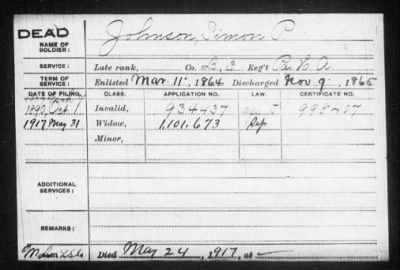 DEAD
NAME OF SOLDIER: Johnson, Simon P
SERVICE: Late rank, Co. L, 3 Reg't Pa. H A
TERM OF SERVICE: Enlisted Mar. 11", 1864 Discharged Nov. 9", 1865
DATE OF FILING. CLASS. APPLICATION NO. LAW. CERTIFICATE NO.
1890 Oct. 1 Invalid, 934437
1917 May 31 Widow, 1,101.673 Sep
Minor,
ADDITIONAL SERVICES:
REMARKS:
Died May 24, 1917, at —